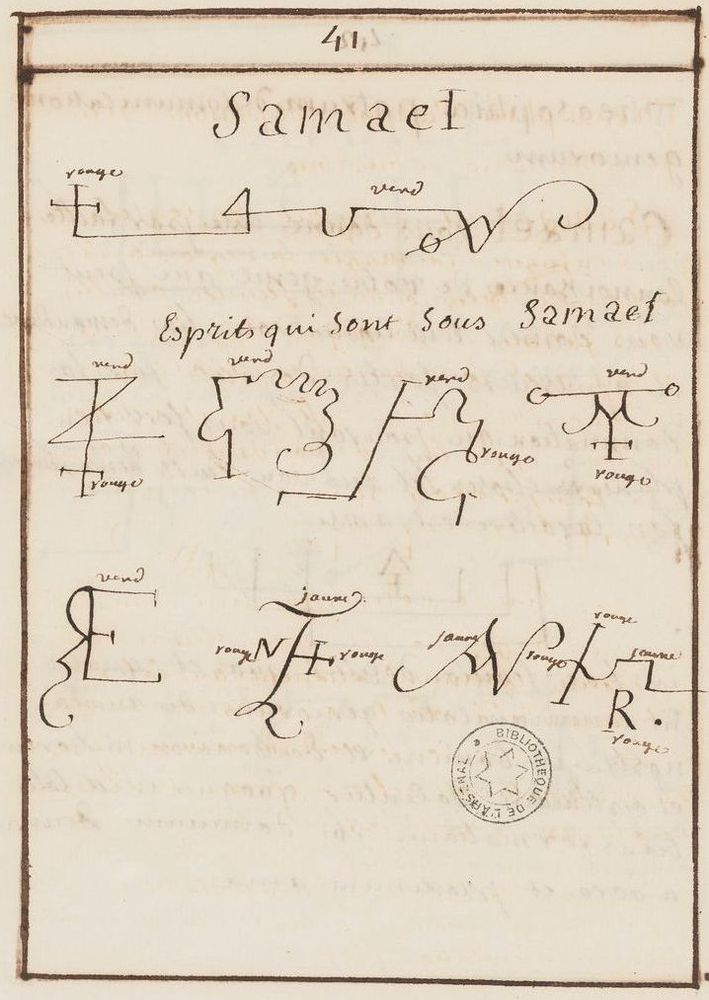 41
Samael
rouge verd
Esprits qui sont sous Samael
verd verd verd verd
rouge rouge
rouge
verd jaune rouge
rouge N rouge jaune rouge jaune
R.
rouge
BIBLIOTHEQUE DE L'ARSENAL